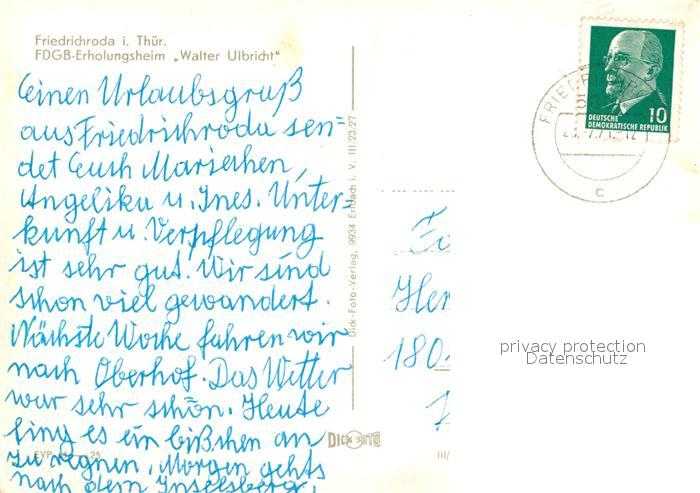 Friedrichroda i. Thür.
FDGB-Erholungsheim „Walter Ulbricht"
Einen Urlaubsgruß
aus Friedrichroda sen=
det Euch Marieschen,
Angelika u. Ines. Unter-
kunft u. Verpflegung
ist sehr gut. Wir sind
schon viel gewandert.
Nächste Woche fahren wir
nach Oberhof. Das Wetter
war sehr schön. Heute
fing es ein bißchen an
zu regnen, Morgen gehts
nach dem Inselsberg,
25
DICK FOTO
III/
Dick-Foto-Verlag, 9934 Erlbach i. V. III/23/27
DEUTSCHE
DEMOKRATISCHE REPUBLIK
10
c
Her
180
privacy protection
Datenschutz